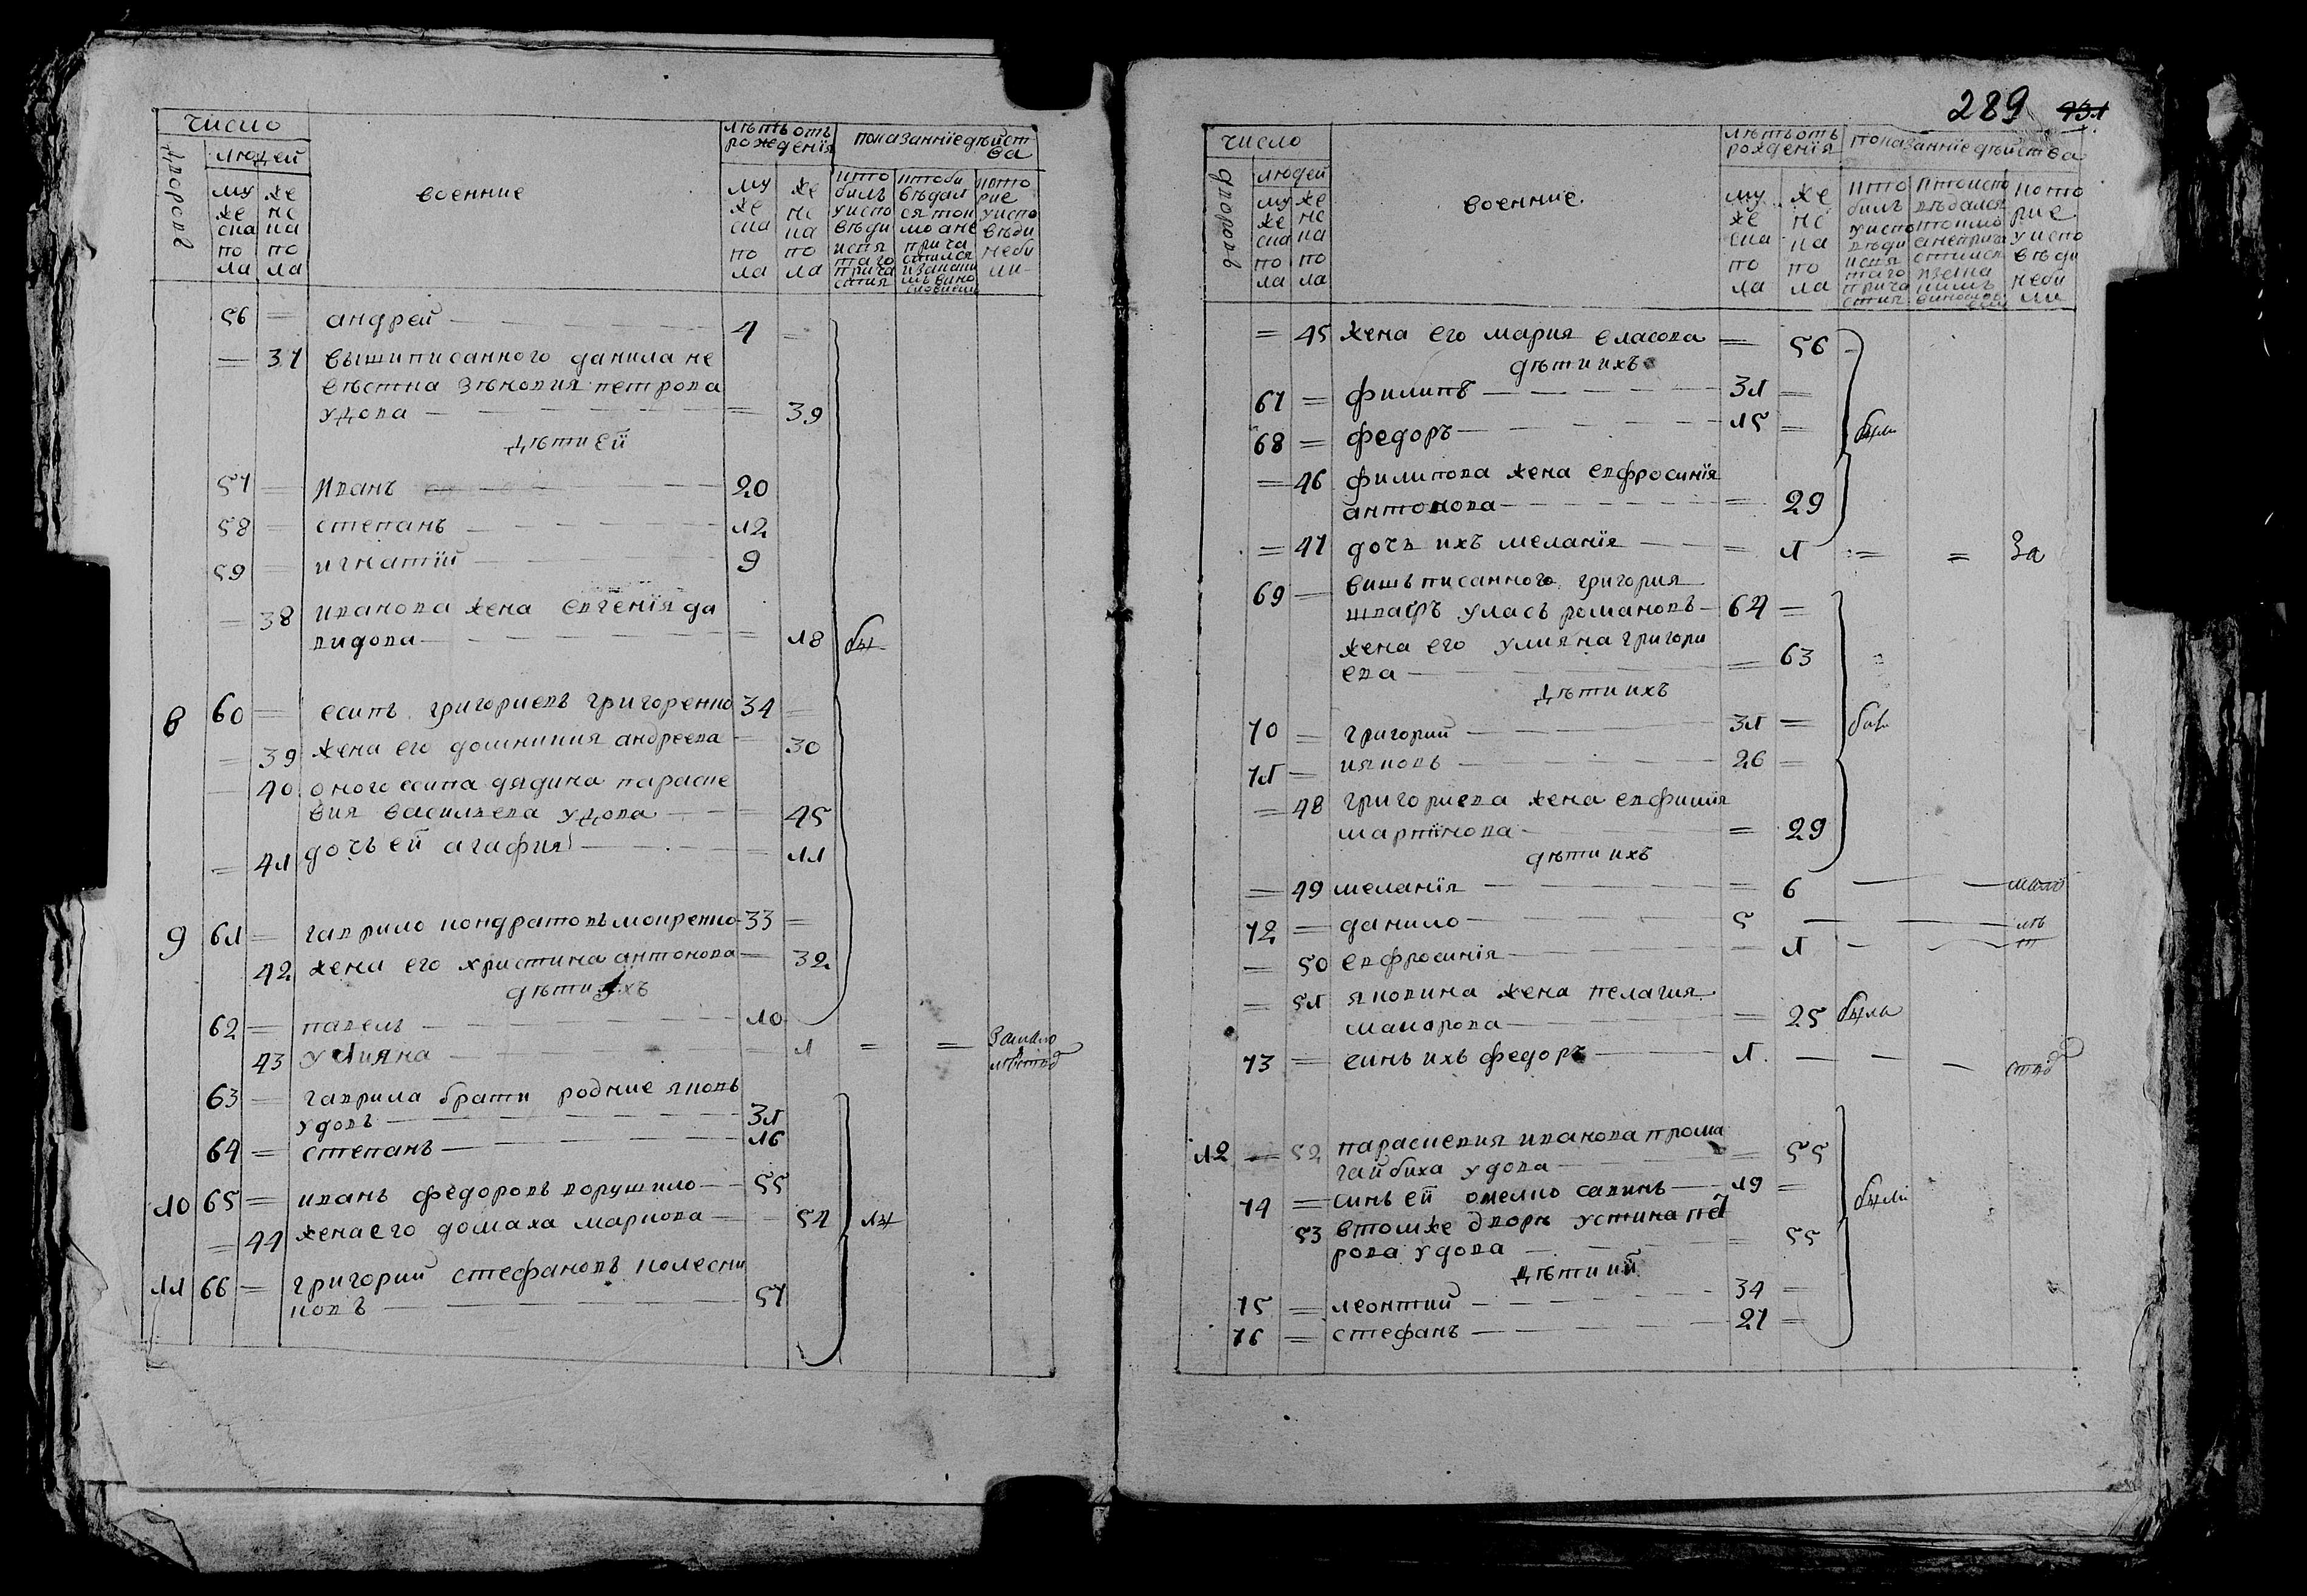 число
дворовъ
людей
муже
ска
по
ла
же
нс
ка
по
ла
военние
лѣтъ отъ
рожденія
му
же
ска
по
ла
же
нс
ка
по
ла
показанние дѣйст
ва
кто
билъ
у испо
вѣди
и свя
таго
прича
стия
кто би
вѣдал
ся ток
мо а не
прича
стился
кото
рие
у испо
вѣди
не би
ли
56 = андрей 7 =
= 37 вышиписанного данила не
вѣстка зѣновия петрова
удова = 39
дѣти ей
57 = иванъ 20
58 = степанъ 12
59 = игнатий 9
= 38 иванова жена евгенія да
видова = 18 бы
8 60 = есипъ григориевъ григоренко 34 =
= 39 жена его домникия андреева = 30
= 40 оного есипа дядина параске
вия василиева удова = 45
= 41 дочъ ей агафия = 11
9 61 = гаврило кондратовъ мокренко 33 =
42 жена его христина антонова = 32
дѣти ихъ
62 = павелъ 10
43 улияна = 1 = = За мало
лѣтствомъ
63 = гаврила брати родние яковъ
удовъ 31
64 = степанъ 16
10 65 = иванъ федоровъ ворушило 55
= 44 жена его домаха маркова = 54 ли
11 66 = григорий стефановъ колесни
ковъ 57
289
число
дворовъ
людей
му
же
ска
по
ла
же
нс
ка
по
ла
военние
лѣтъ отъ
рожденія
му
же
ска
по
ла
же
нс
ка
по
ла
показанние дѣйства
кто
билъ
у испо
вѣди
и свя
таго
прича
стия
кто испо
вѣдался
токмо
а не прича
стился
кото
рие
у испо
вѣди
не би
ли
= 45 жена его мария власова = 56
дѣти ихъ
67 = филипъ 31 =
68 = федоръ 15 = были
= 46 филипова жена евфросинія
антонова = 29
= 47 дочъ ихъ меланія = 1 = = За
69 = вишъписанного григория
швагръ уласъ романовъ 64 =
жена его улияна григори
ева = 63
дѣти ихъ
70 = григорий 31 = били
71 = яковъ 26 =
= 48 григориева жена евфимия
мартінова = 29
дѣти ихъ
= 49 меланія = 6 мало
72 = данило 5 лѣ
= 50 евфросинія = 1 т
= 51 яковина жена пелагия
макарова = 25 была
73 = синъ ихъ федоръ 1 ствомъ
12 = 52 параскевия иванова прома
гайбиха удова = 55
74 = синъ ей омелко савинъ 19 = были
53 в томже дворѣ устина пет
рова удова = 55
дѣти ий
75 = леонтий 34 =
76 = стефанъ 27 =